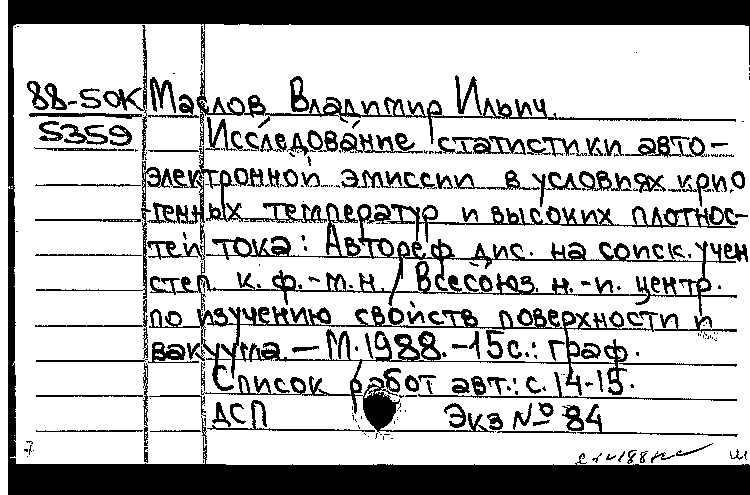 88-5OK Маслов Владимир Ильич.
5359 Исследование статистики авто-
электронной эмиссии в условиях крио
генных температур и высоких плотнос-
тей тока: Автореф дис. на соиск. учен
степ. к. ф.-м.н. / Всесоюз. н.-и. центр.
по изучению свойств поверхности и
вакуума. — М. 1988. — 15с.: граф.
Список работ авт.: с. 14-15.
ДСП Экз № 84